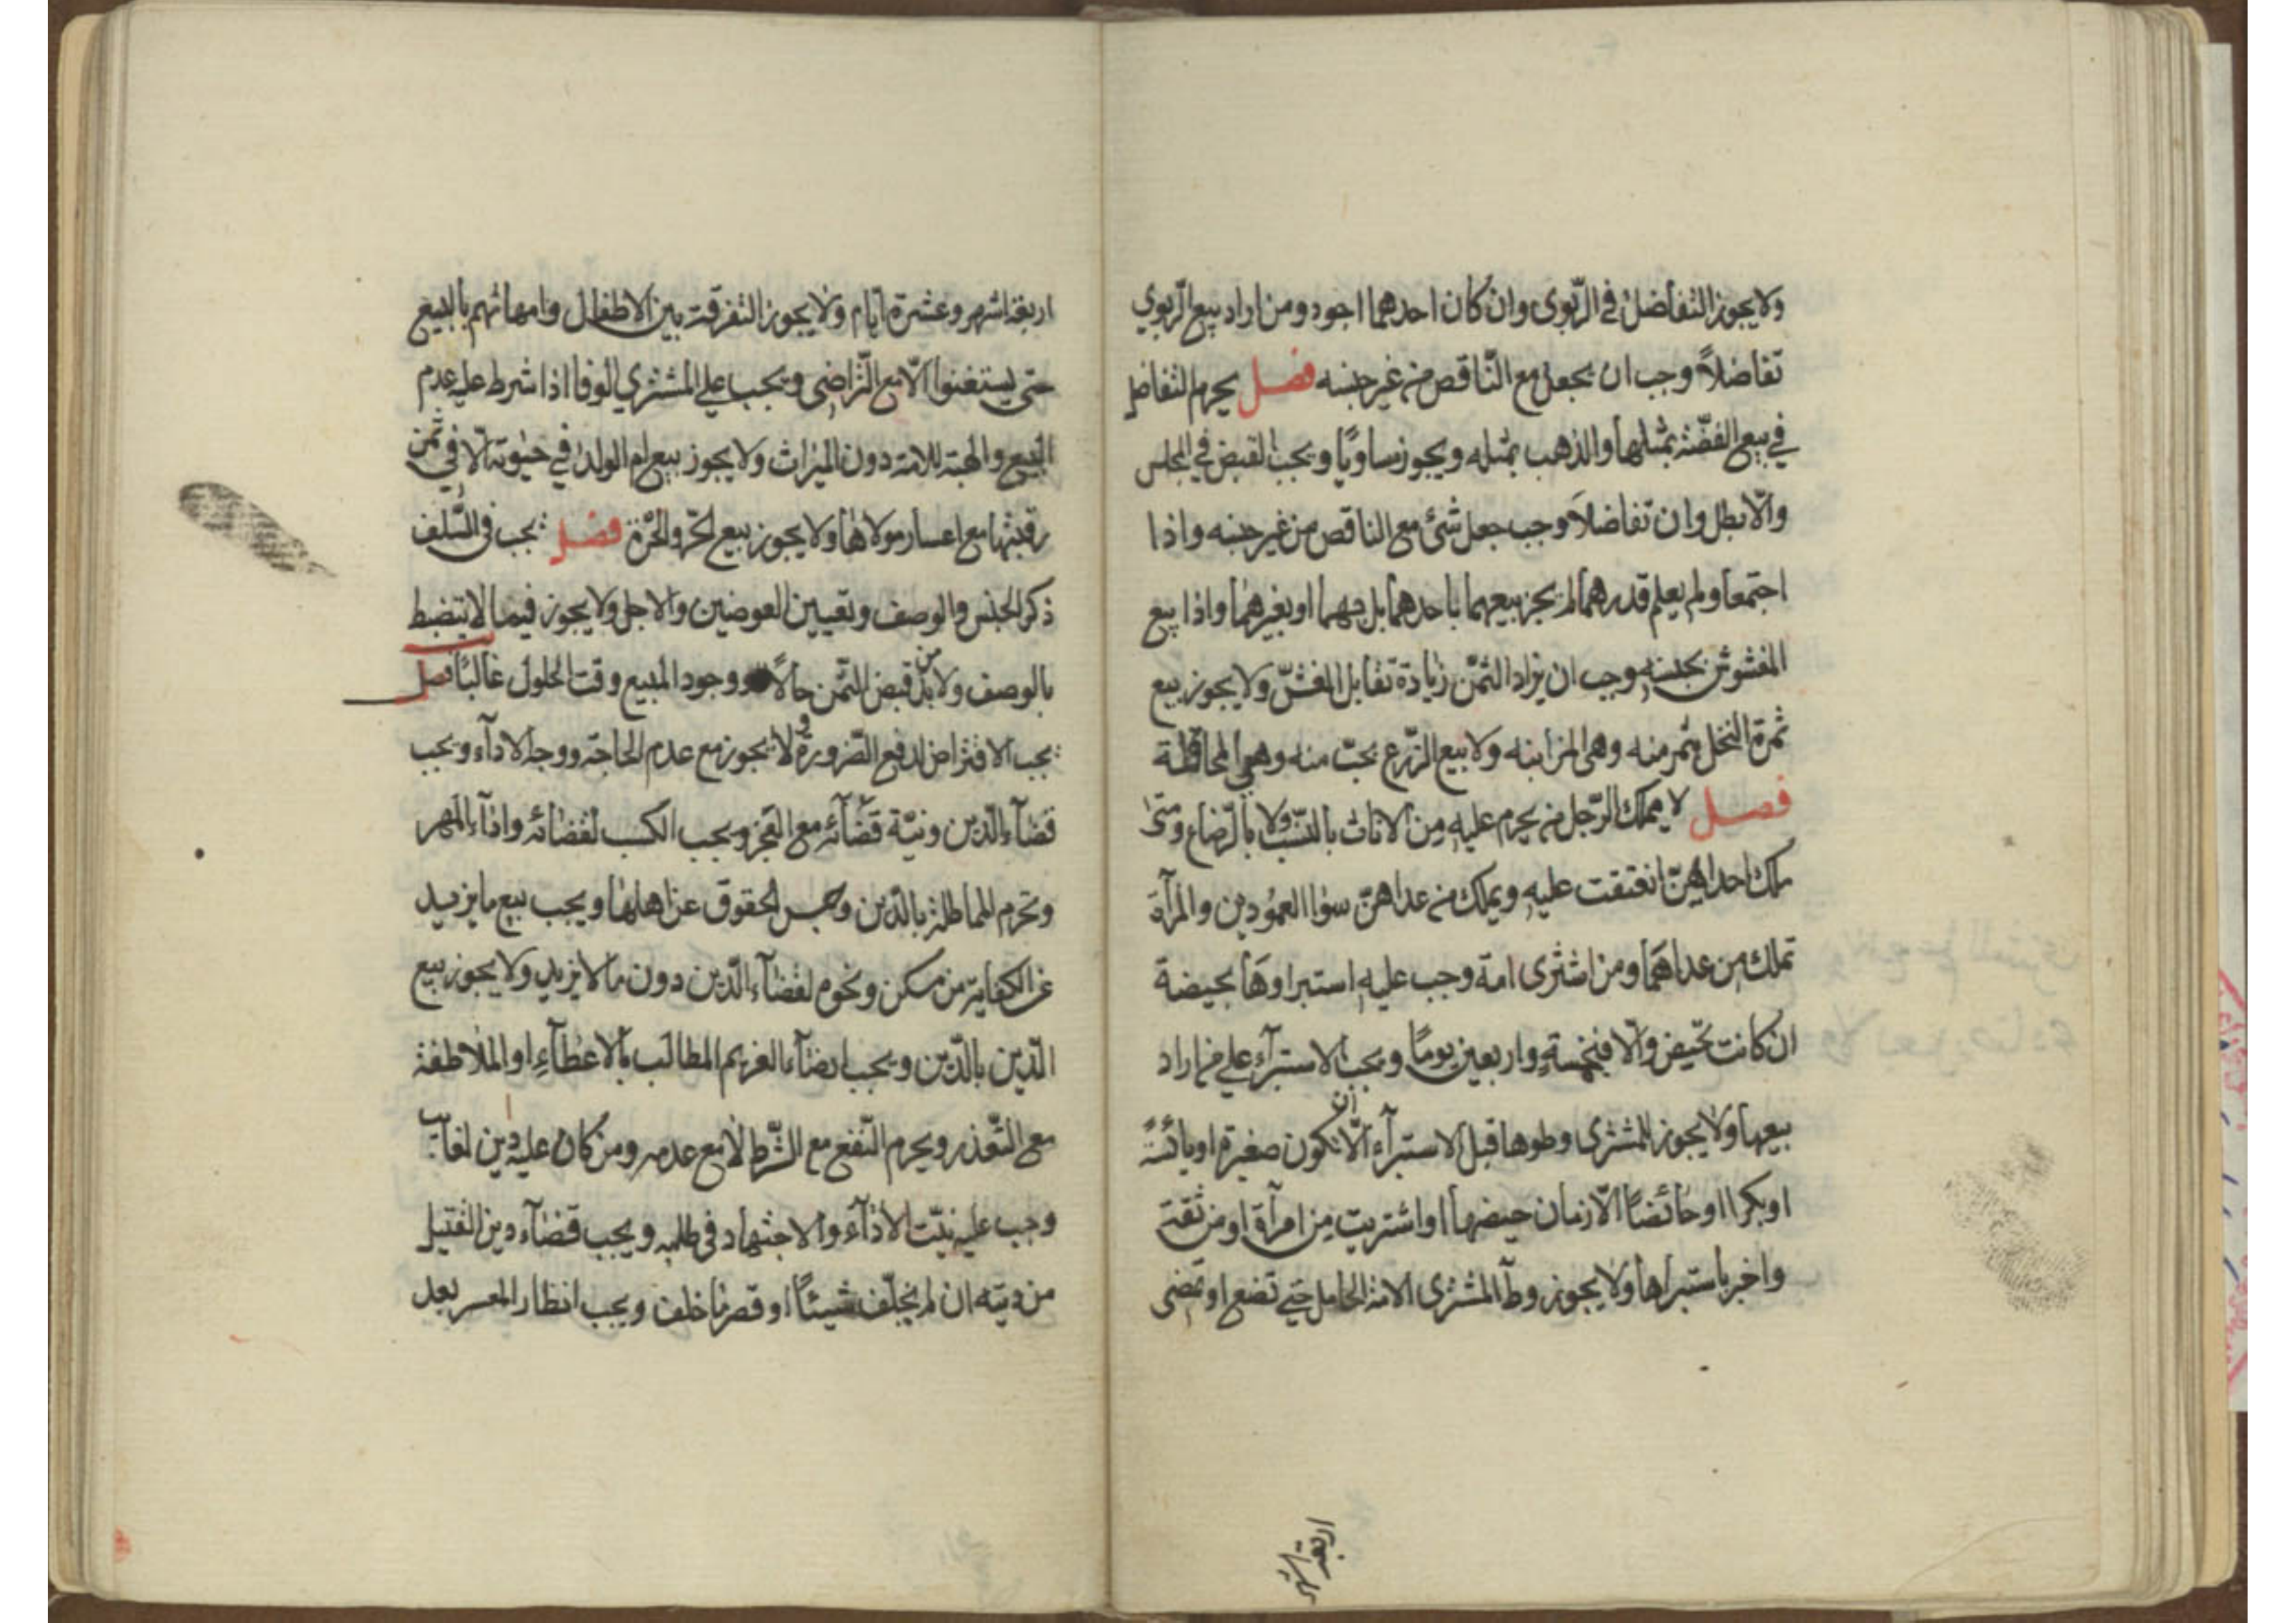 ولا يجوز التفاضل في الربوى وان كان احدهما اجود ومن اراد بيع الربوي
تفاضلاً وجب ان يجعل مع الناقص من غير جنسه فصل يحرم التفاضل
في بيع الفضّة بمثلها والذهب بمثله ويجوز تساويًا ويجب القبض في المجلس
والّا بطل وان تفاضلاً وجب جعل شئ مع الناقص من غير جنسه واذا
اجتمعا ولم يعلم قدرهما لم يجز بيعهما باحدهما بل بهما او بغيرهما واذا بيع
المغشوش بجنسه وجب ان يزاد الثمن زيادة تقابل الغشّ ولا يجوز بيع
ثمرة النخل بثمر منه وهى المزابنه ولا بيع الزّرع بحبّ منه وهي المحاقلة
فصل لا يملك الرّجل من يحرم عليه من الاناث بالنسب ولا بالرّضاع ومتى
ملك احداهنّ انعتقت عليه ويملك من عداهنّ سوا العمودين والمرآة
تملك من عداهما ومن اشترى امة وجب عليه استبراوها بحيضة
ان كانت تحيض والّا فبخمسة واربعين يومًا ويجب الاستبرآء علي من اراد
بيعها ولا يجوز للمشترى وطوها قبل الاستبرآء الّا ان تكون صغيرة او يائسة
او بكرا او حائضًا الّا زمان حيضها او اشتريت من امرآة او من ثقة
واخبر باستبراها ولا يجوز وطآ المشترى الامة الحامل حتي تضع او تمضى
اربعة اشهر
اربعة اشهر وعشرة ايّام ولا يجوز التفرقة بين الاطفال وامهاتهم بالبيع
حتى يستغنوا الّا مع التّراضى ويجب علي المشتري الوفا اذا شرط عليه عدم
البيع والهبة للامة دون الميراث ولا يجوز بيع ام الولد في حيوته الّا في ثمن
رقبتها مع اعسار مولاها ولا يجوز بيع الحرّ والحرّة فصل يجب فى السّلف
ذكر الجنس والوصف وتعيين العوضين والاجل ولا يجوز فيما لا ينضبط
بالوصف ولا بدّ من قبض الثمن حالاً ووجود المبيع وقت الحلول غالبًا فصل
يجب الاقتراض لدفع الضّرورة ولا يجوز مع عدم الحاجة ووجه الادآء ويجب
قضآء الدّين ونيّة قضآئه مع العجز ويجب الكسب لقضائه وافآء المهر
وتحرم المماطلة بالدّين وحبس الحقوق عن اهلها ويجب بيع ما يزيد
عن الكفاية من مسكن ونحوه لقضآء الدّين دون ما لا يزيد ولا يجوز بيع
الدّين بالدّين ويجب ارضآء الغريم المطالب بالاعطآء او الملاطفة
مع التّعذر ويحرم النّفع مع الشّرط لا مع عدمه ومن كان عليه دين لغائب
وجب عليه نيّت الادآء والاجتهاد فى طلبه ويجب قضآء دين القتيل
من ديته ان لم يخلّف شيئًا او قصر ما خلف ويجب انظار المعسر بعد